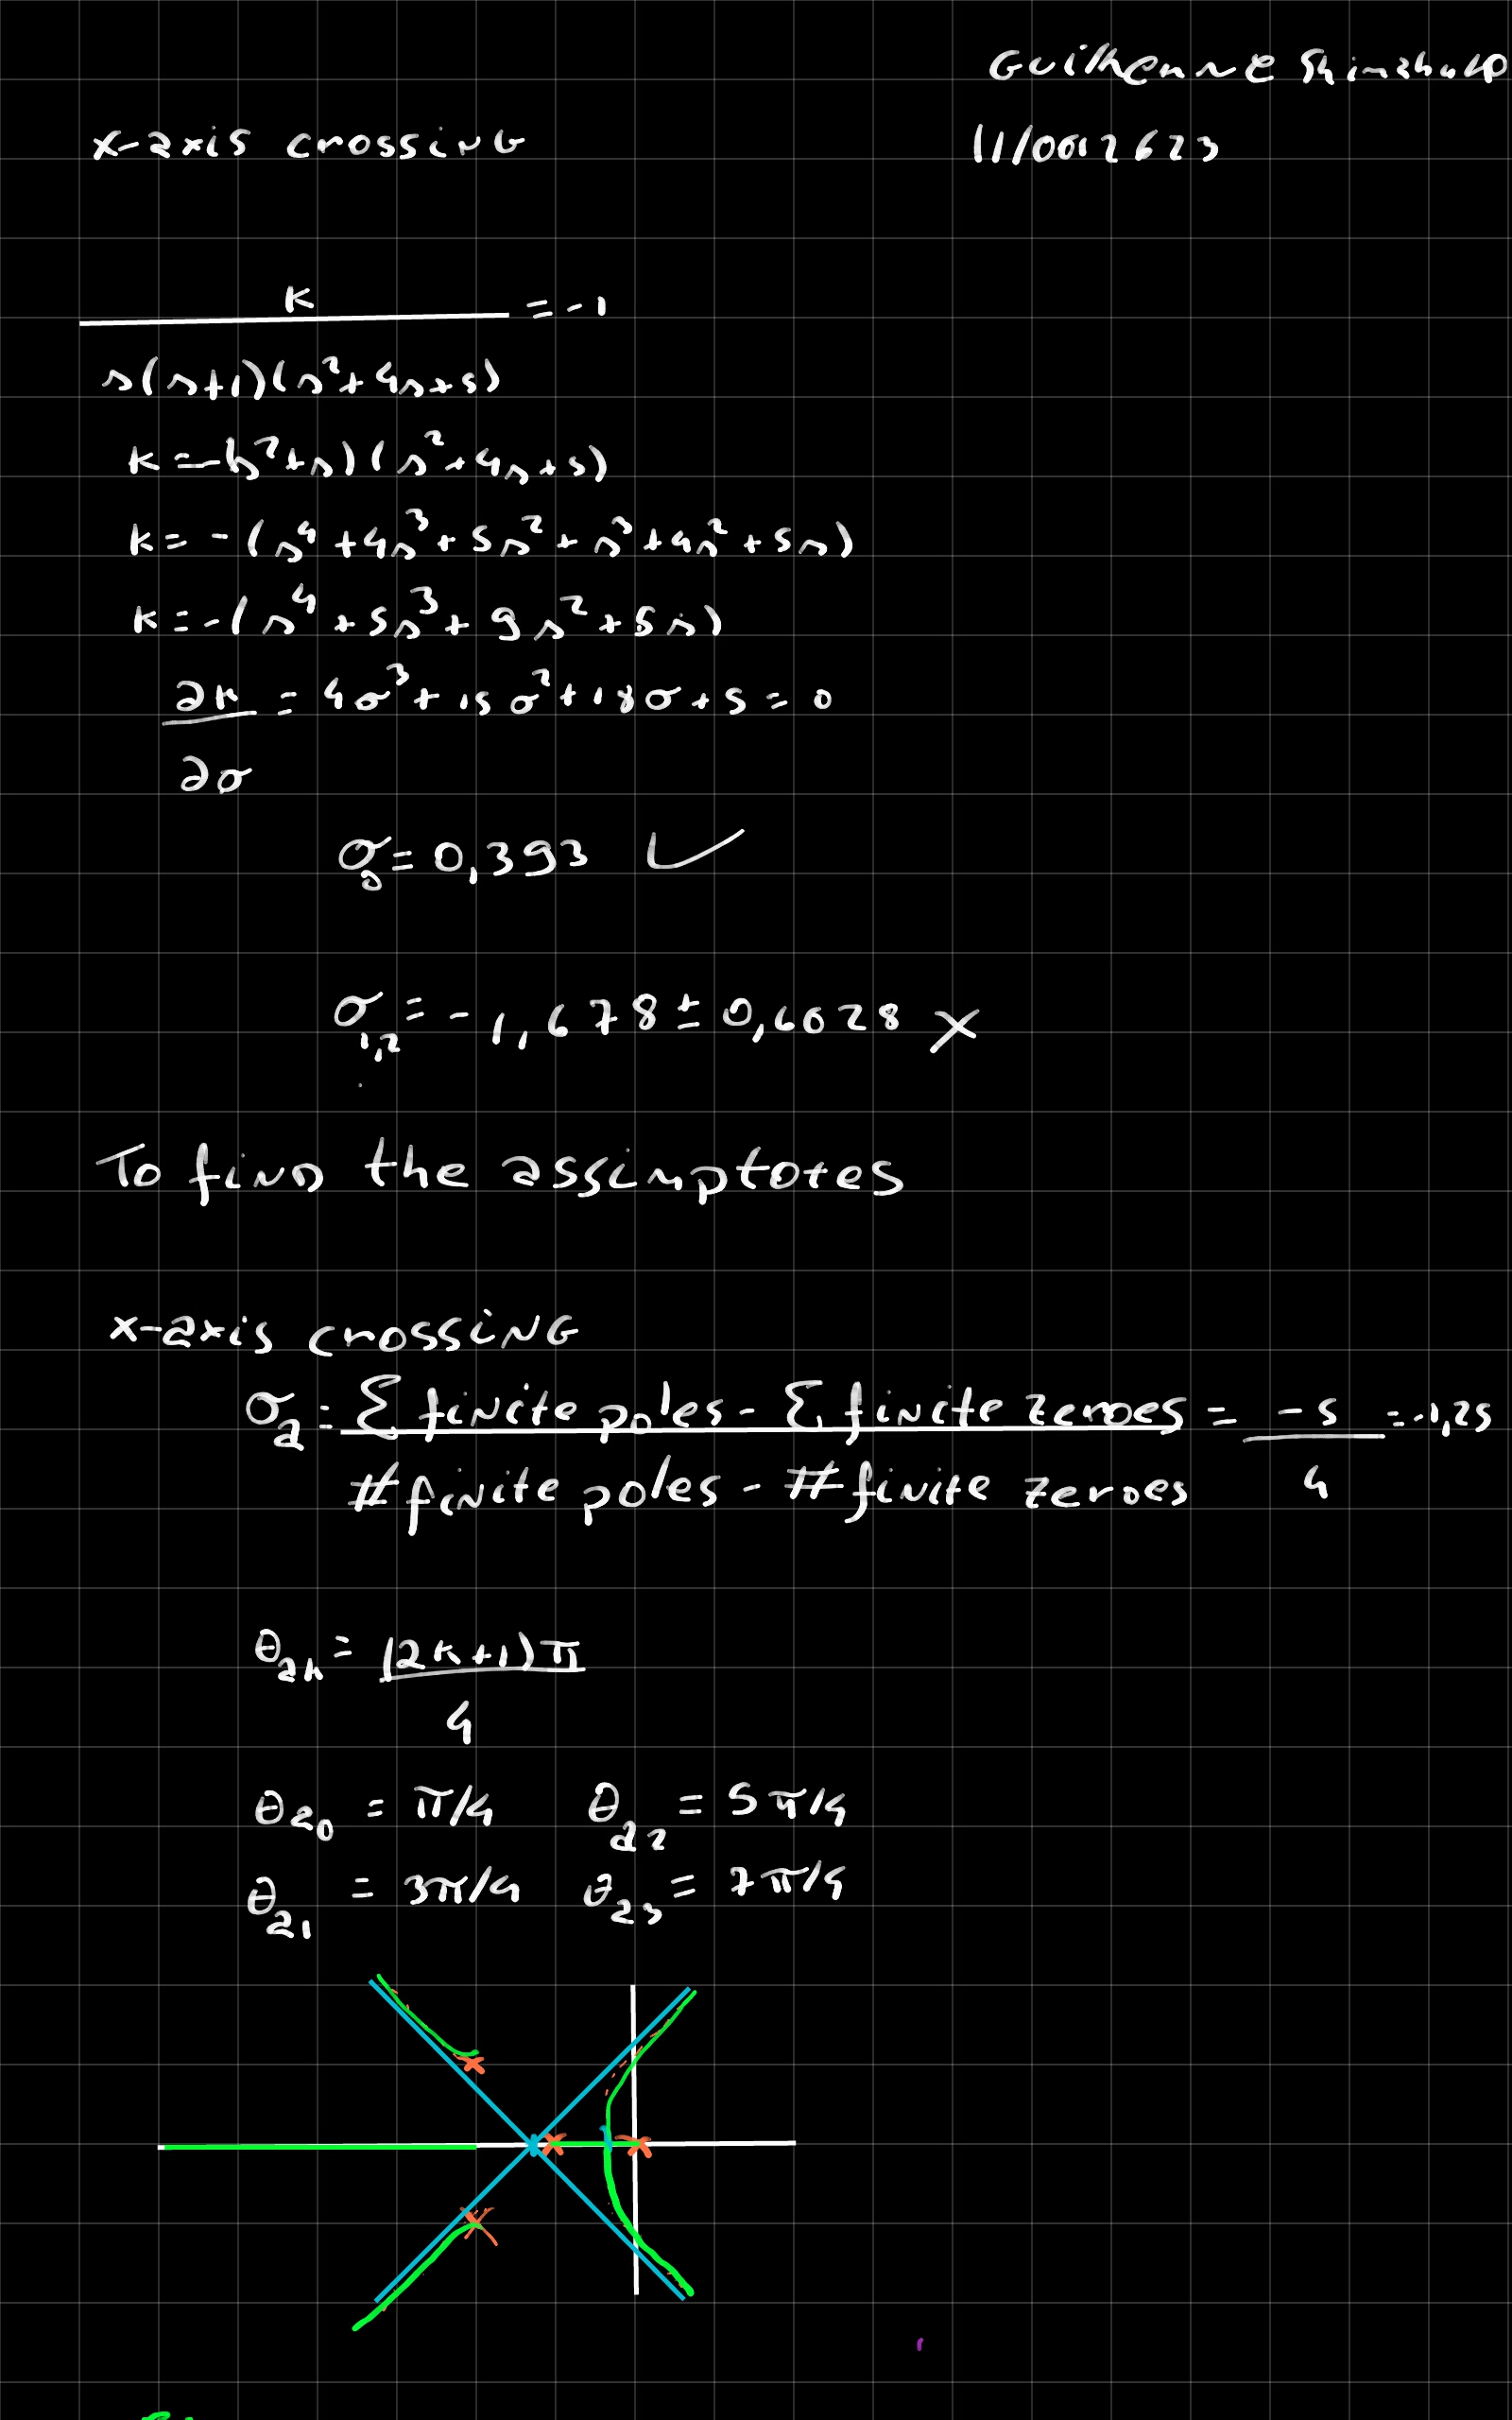 x-axis crossing
11/0012623
K / s(s+1)(s²+4s+5) = -1
K = -(s²+s)(s²+4s+5)
K = -(s⁴+4s³+5s²+s³+4s²+5s)
K = -(s⁴+5s³+9s²+5s)
∂K/∂σ = 4σ³+15σ²+18σ+5 = 0
σ₀ = 0,393 ✓
σ₁,₂ = -1,678 ± 0,6028 ×
To find the assimptotes
x-axis crossing
σa = (Σ finite poles - Σ finite zeroes) / (#finite poles - #finite zeroes) = -5/4 = -1,25
θak = (2k+1)π / 4
θa0 = π/4 θa2 = 5π/4
θa1 = 3π/4 θa3 = 7π/4